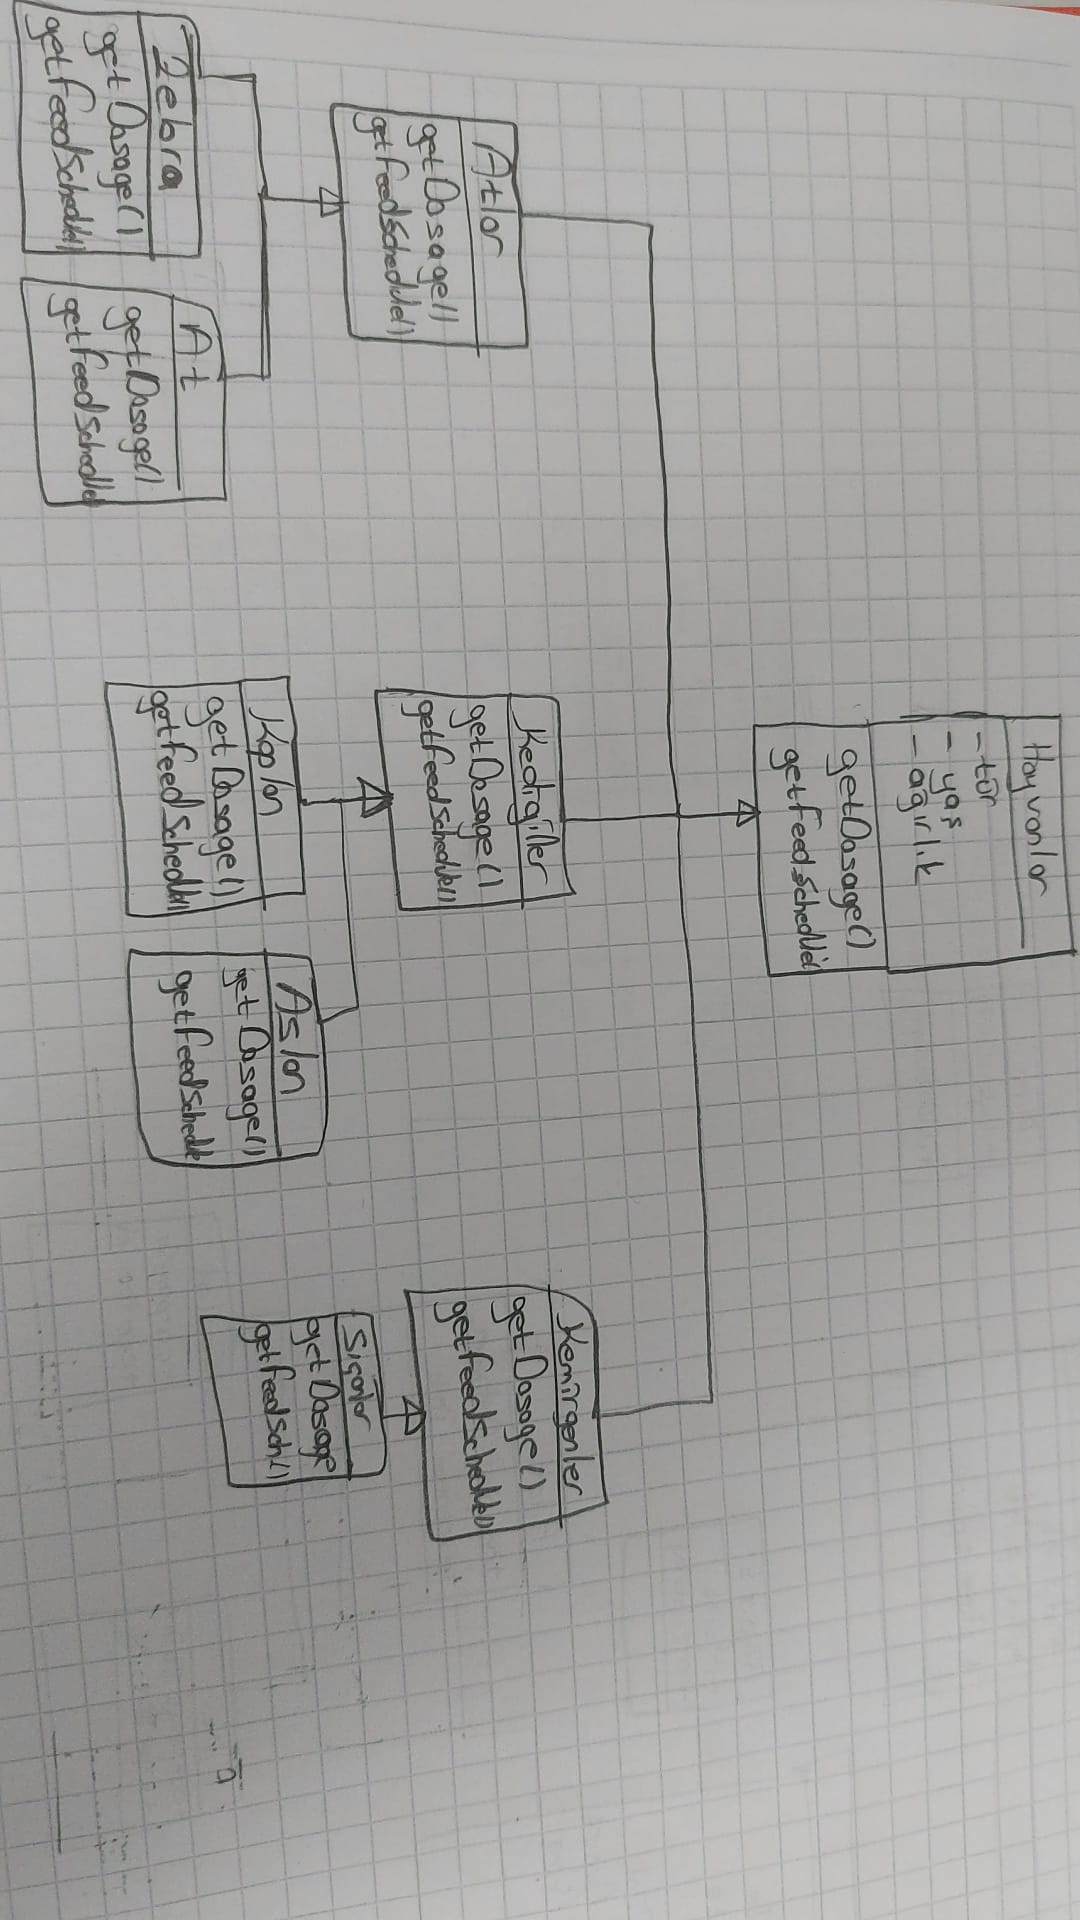 Hayvanlar
- tür
- yaş
- ağırlık
getDosage()
getFeedSchedule()
Atlar
getDosage()
getFeedSchedule()
Kedigiller
getDosage()
getFeedSchedule()
Kemirgenler
getDosage()
getFeedSchedule()
Zebra
getDosage()
getFeedSchedule()
At
getDosage()
getFeedSchedule
Kaplan
getDosage()
getFeedSchedule()
Aslan
getDosage()
getFeedSchedule
Sıçanlar
getDosage
getFeedSch()